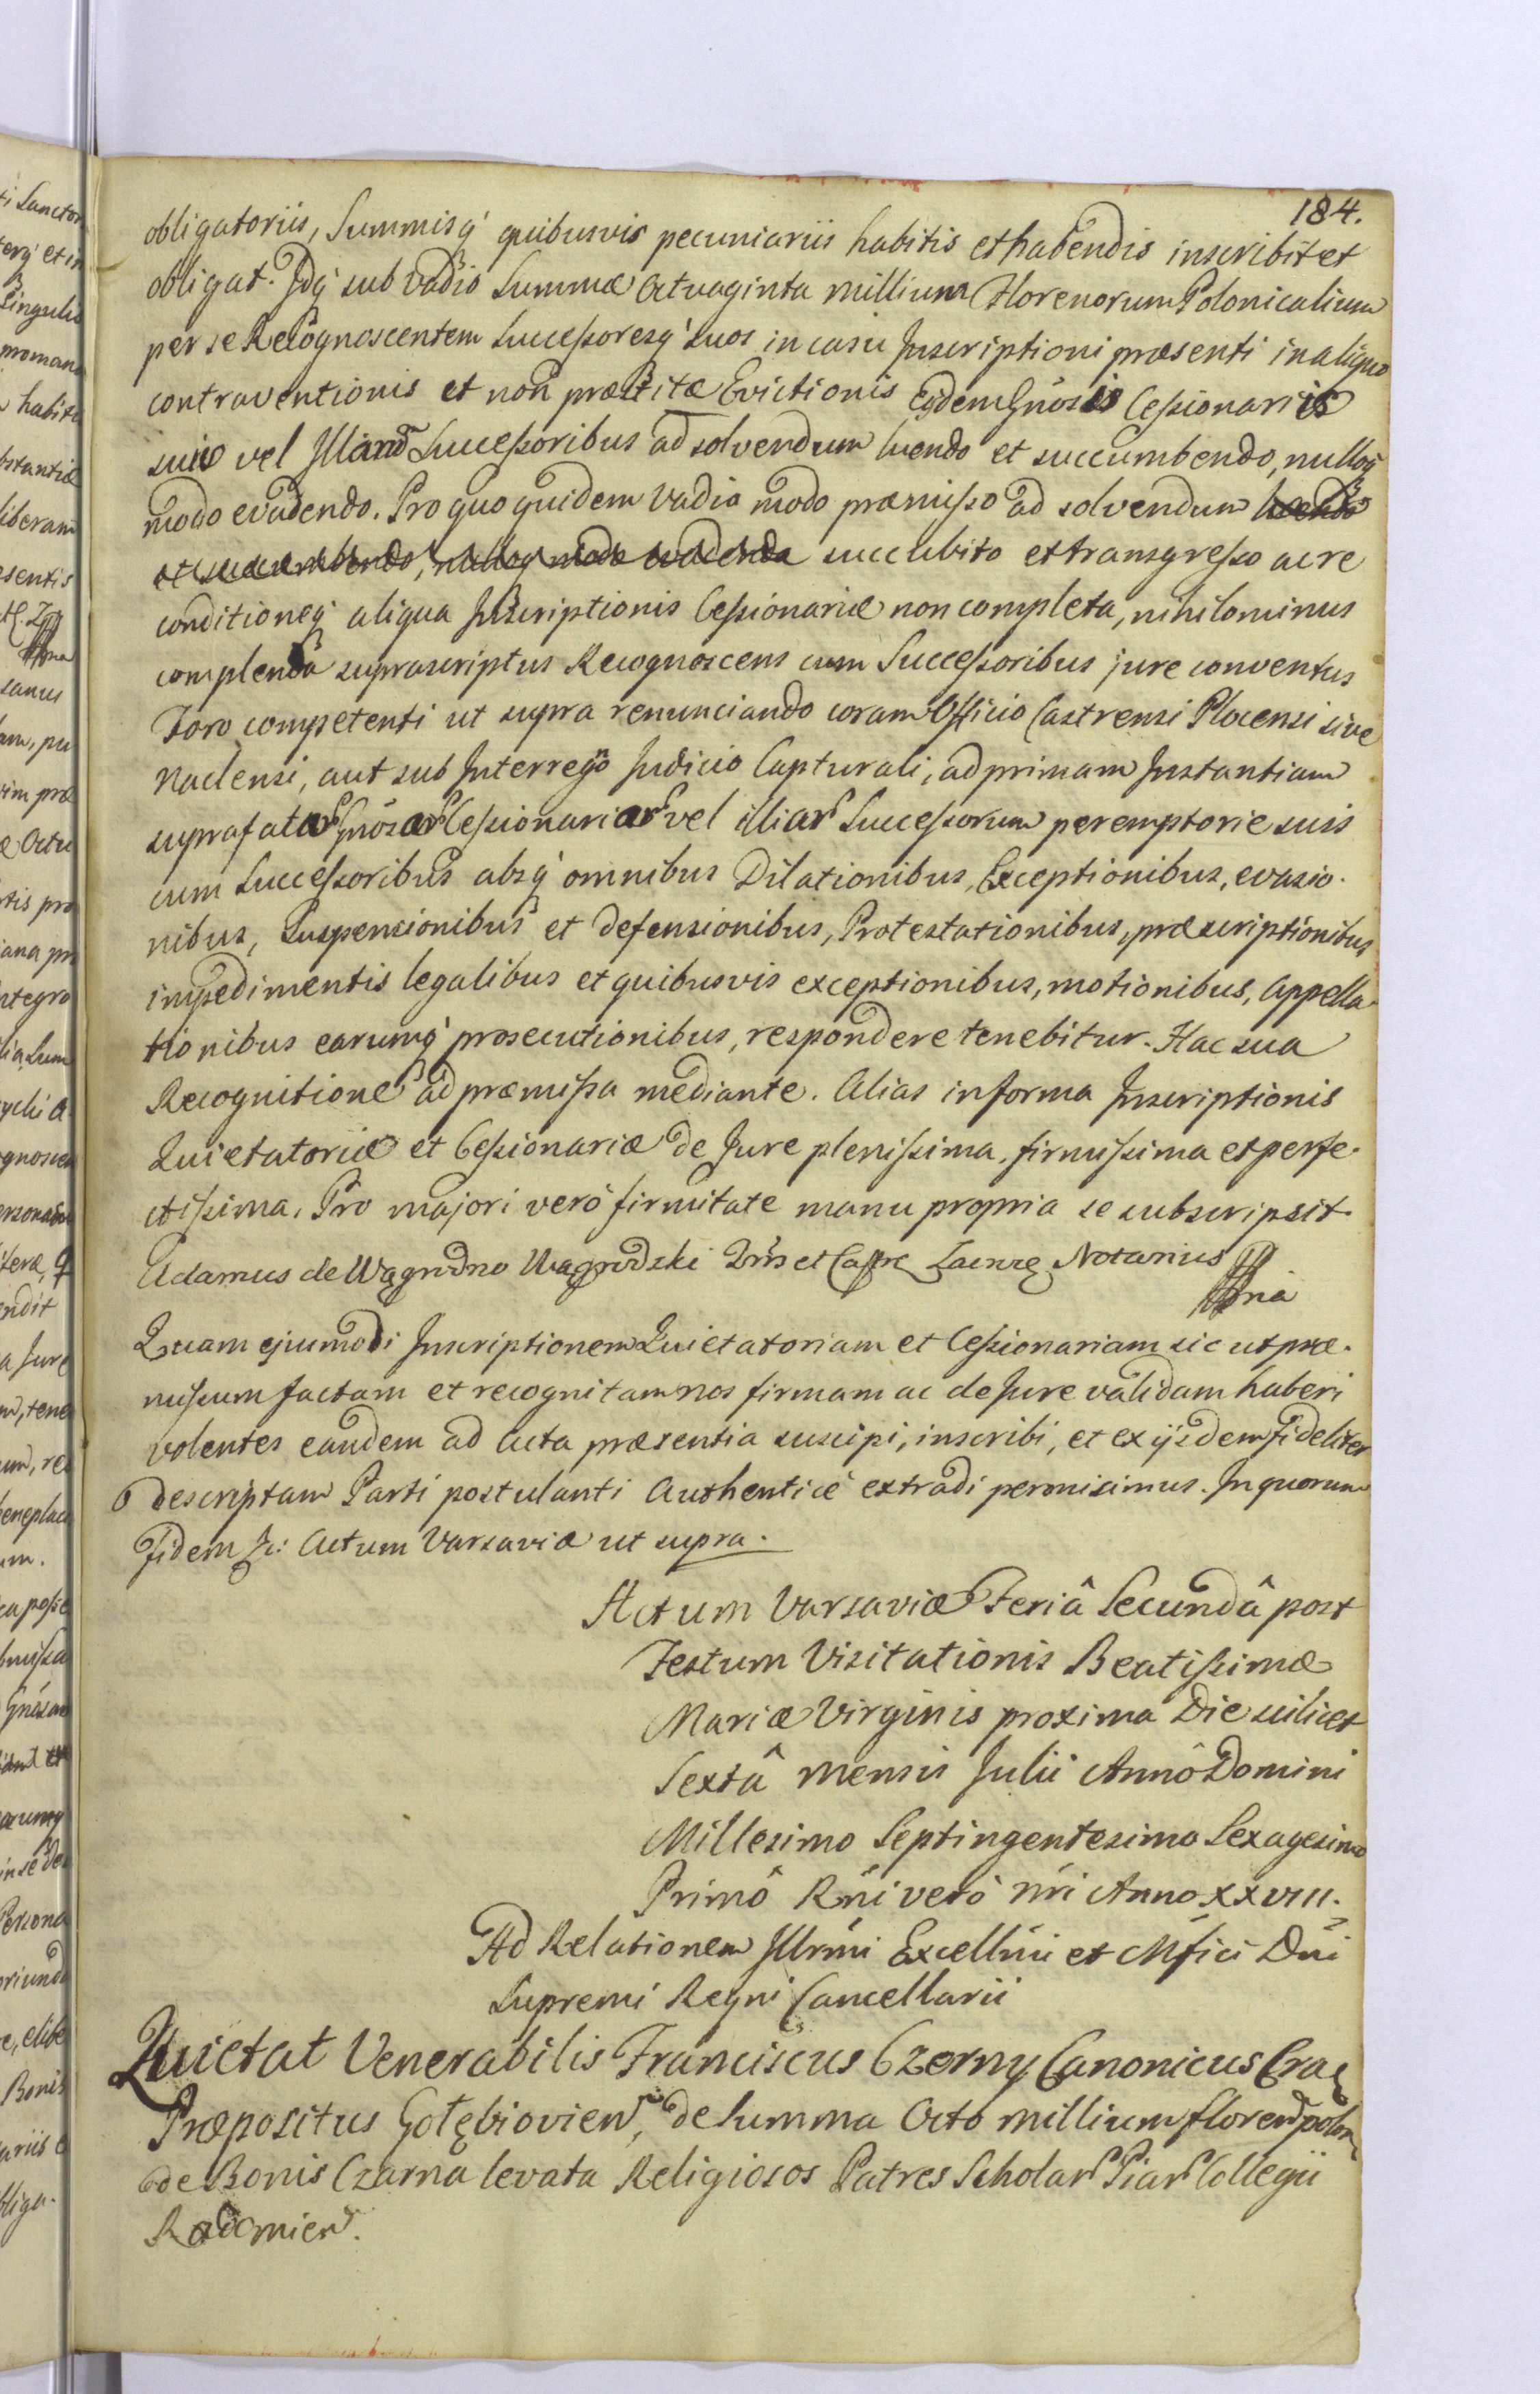 184.
obligatoriis, Summisq́ quibusvis pecuniariis habitis et habendis inscribit et
obligat. Idq́ sub vadio Summæ Octuaginta Millium Florenorum Polonicalium
per se Recognoscentem Successoresq́ suos in casu Inscriptioni præsenti in aliquo
contraventionis et non præstitæ Evictionis Eisdem Gnosis Cessionariis
suis vel Successoribus ad solvendum luendo et succumbendo, nulloq́
modo evadendo. Pro quo quidem Vadio modo præmisso ad solvendum luendo
et succumbendo, nulloq́ modo evadendo succubito et transgresso acre
conditioneq́ aliqua Inscriptionis Cessionariæ non completa, nihilominus
complenda suprascriptus Recognoscens cum Successoribus jure conventus
Foro competenti ut supra renunciando coram Officio Castrensi Plocensi sive
Naclensi, aut sub Interregño Judicio Capturali, ad primam Instantiam
suprafatar Gnosar Cessionariar vel illiar Successorum peremptorie suis
cum Successoribus absq́ omnibus Dilationibus, Exceptionibus, evasio-
nibus, Suspensionibus et defensionibus, Protestationibus, præscriptionibus
impedimentis legalibus et quibusvis exceptionibus, motionibus, Appella-
tionibus earumq́ prosecutionibus, respondere tenebitur. Hac sua
Recognitione ad præmissa mediante. Alias in forma Inscriptionis
Quietatoriæ et Cessionariæ de Jure plenissima, firmissima et perfe-
ctissima. Pro majori verò firmitate manu propria se subscripsit.
Adamus de Wągrodno Wągrodzki Notarius
mpria
Quam ejusmodi Inscriptionem Quietatoriam et Cessionariam sic ut præ-
missum factam et recognitam nos firmam ac de Jure validam haberi
volentes eandem ad Acta præsentia suscipi, inscribi, et ex ijsdem fideliter
descriptam Parti postulanti Authenticè extradi permisimus. In quorum
fidem &: Actum Varsaviæ ut supra.
Actum Varsaviæ Feriâ Secundâ post
Festum Visitationis Beatissimæ
Mariæ Virginis proxima Die scilicet
Sextâ Mensis Julii Annô Domini
Millesimo Septingentesimo Sexagesimo
Primô Rńi verò nri Anno XXVIII.
Ad Relationem Illrmi Excellmi et Mfici Dni
Supremi Regni Cancellarii
Quietat Venerabilis Franciscus Czerny Canonicus Crac
Præpositus Gołębiovien, de Summa Octo millium floren polon
de Bonis Czarna levata Religiosos Patres Scholar Piar Collegii
Radomien.